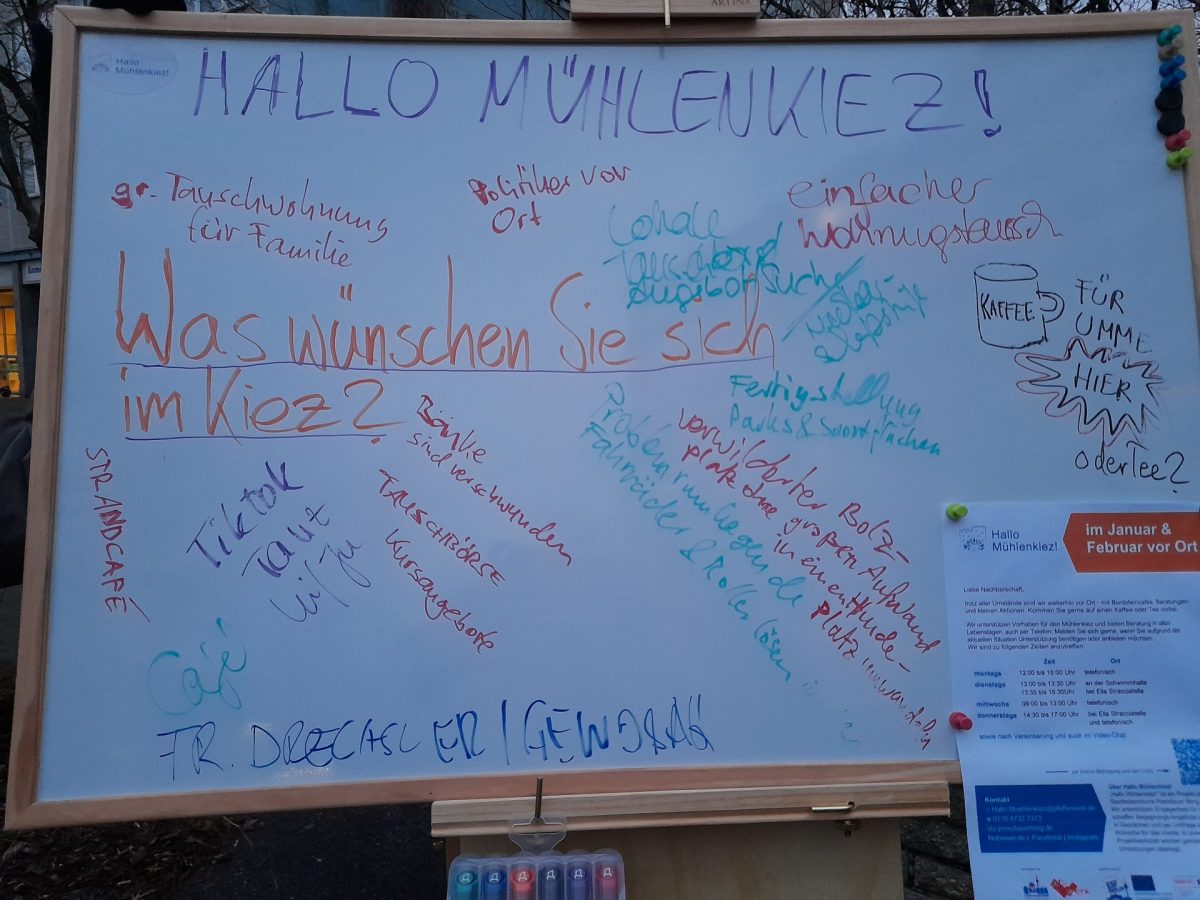 ARTINA
Hallo
Mühlenkiez!
HALLO MÜHLENKIEZ!
gr. Tauschwohnung
für Familie
Politiker vor
Ort
einfacher
Wohnugstausch
Lokale
Tauschbörse
Angebot suche
Was wünschen Sie sich
im Kiez?
KAFFEE
FÜR
UMME
HIER
oder Tee?
Fertigstellung
Parks & Sportflächen
Bänke
sind verschwunden
Problem rumliegende
Fahrräder & Roller lösen
verwilderter Bolz-
platz ohne großen Aufwand
in einen Hunde-
platz umwandeln
STRANDCAFÉ
Tiktok
TAUSCHBÖRSE
Kursangebote
Café
FR. DRECHSLER / GEWOBAG
Hallo
Mühlenkiez!
im Januar &
Februar vor Ort
Liebe Nachbarschaft,
trotz aller Umstände sind wir weiterhin vor Ort - mit Bordsteincafés, Beratungen
und kleinen Aktionen. Kommen Sie gerne auf einen Kaffee oder Tee vorbei.
Wir unterstützen Vorhaben für den Mühlenkiez und bieten Beratung in allen
Lebenslagen, auch per Telefon. Melden Sie sich gerne, wenn Sie aufgrund der
aktuellen Situation Unterstützung benötigen oder anbieten möchten.
Wir sind zu folgenden Zeiten anzutreffen:
Zeit Ort
montags 12:00 bis 15:00 Uhr telefonisch
dienstags 13:00 bis 13:30 Uhr an der Schwimmhalle
13:30 bis 15:30Uhr bei Ella Stracciatella
mittwochs 09:00 bis 13:00 Uhr telefonisch
donnerstags 14:30 bis 17:00 Uhr bei Ella Stracciatella
und telefonisch
sowie nach Vereinbarung und auch im Video-Chat
Kontakt
Über Hallo Mühlenkiez!